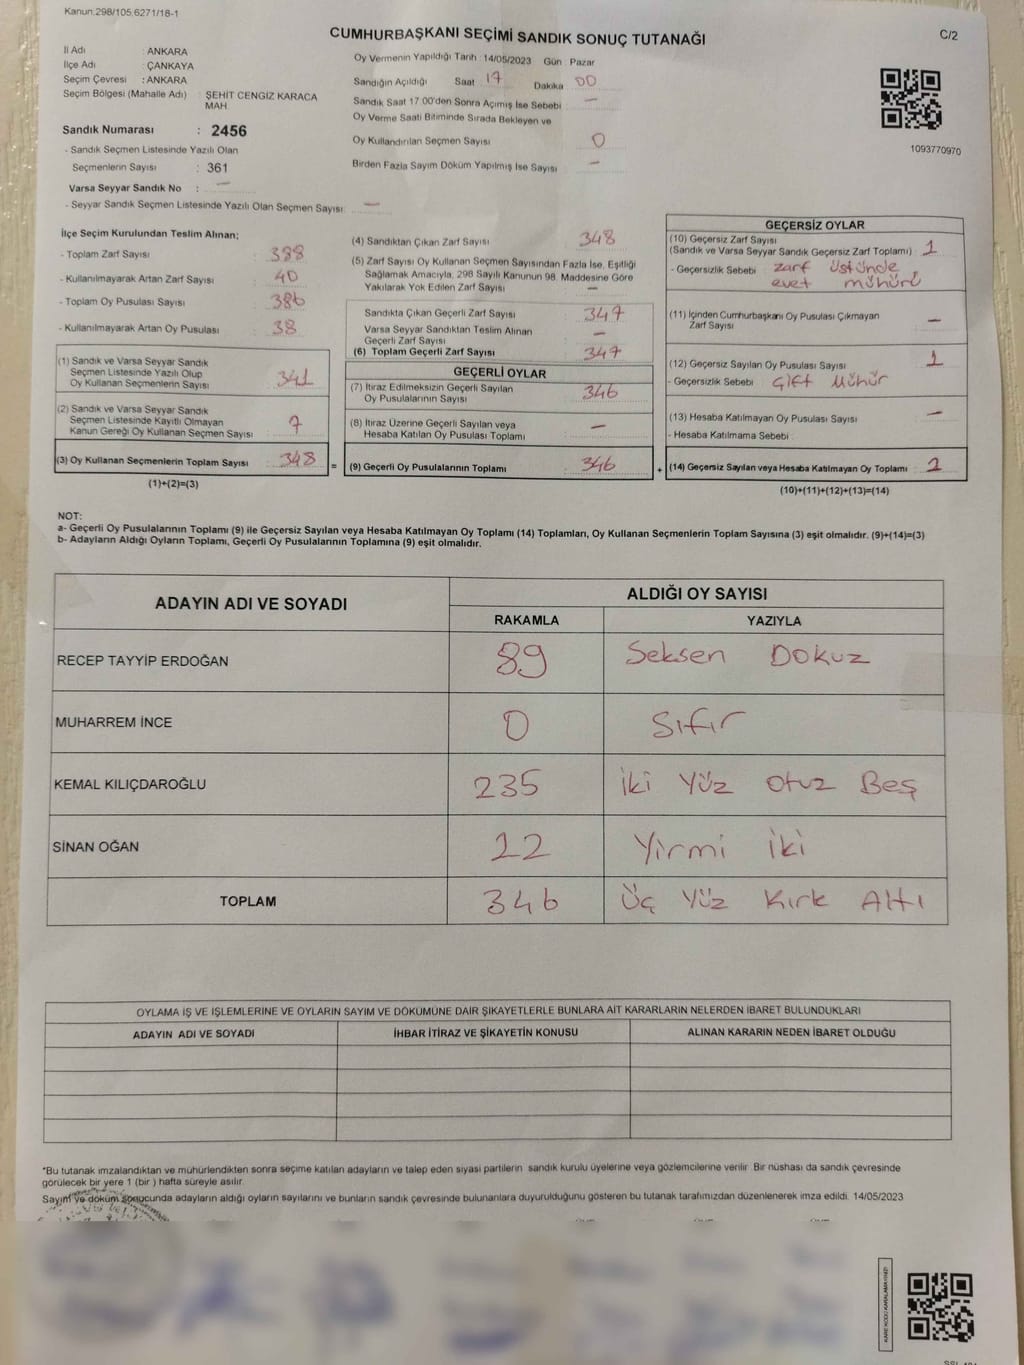 Kanun.298/105.6271/18-1
CUMHURBAŞKANI SEÇİMİ SANDIK SONUÇ TUTANAĞI
C/2
İl Adı : ANKARA
İlçe Adı : ÇANKAYA
Seçim Çevresi : ANKARA
Seçim Bölgesi (Mahalle Adı) : ŞEHİT CENGİZ KARACA
MAH
Sandık Numarası : 2456
- Sandık Seçmen Listesinde Yazılı Olan
Seçmenlerin Sayısı : 361
Varsa Seyyar Sandık No : —
- Seyyar Sandık Seçmen Listesinde Yazılı Olan Seçmen Sayısı: —
Oy Vermenin Yapıldığı Tarih : 14/05/2023 Gün : Pazar
Sandığın Açıldığı Saat 17 Dakika 00
Sandık Saat 17.00'den Sonra Açımış İse Sebebi —
Oy Verme Saati Bitiminde Sırada Bekleyen ve
Oy Kullandırılan Seçmen Sayısı: 0
Birden Fazla Sayım Döküm Yapılmış İse Sayısı —
1093770970
İlçe Seçim Kurulundan Teslim Alınan;
- Toplam Zarf Sayısı : 388
- Kullanılmayarak Artan Zarf Sayısı : 40
- Toplam Oy Pusulası Sayısı : 386
- Kullanılmayarak Artan Oy Pusulası : 38
(1) Sandık ve Varsa Seyyar Sandık
Seçmen Listesinde Yazılı Olup
Oy Kullanan Seçmenlerin Sayısı : 341
(2) Sandık ve Varsa Seyyar Sandık
Seçmen Listesinde Kayıtlı Olmayan
Kanun Gereği Oy Kullanan Seçmen Sayısı : 7
(3) Oy Kullanan Seçmenlerin Toplam Sayısı : 348 =
(1)+(2)=(3)
(4) Sandıktan Çıkan Zarf Sayısı : 348
(5) Zarf Sayısı Oy Kullanan Seçmen Sayısından Fazla İse, Eşitliği
Sağlamak Amacıyla, 298 Sayılı Kanunun 98. Maddesine Göre
Yakılarak Yok Edilen Zarf Sayısı : —
Sandıkta Çıkan Geçerli Zarf Sayısı : 347
Varsa Seyyar Sandıktan Teslim Alınan
Geçerli Zarf Sayısı : —
(6) Toplam Geçerli Zarf Sayısı : 347
GEÇERLİ OYLAR
(7) İtiraz Edilmeksizin Geçerli Sayılan
Oy Pusulalarının Sayısı : 346
(8) İtiraz Üzerine Geçerli Sayılan veya
Hesaba Katılan Oy Pusulası Toplamı : —
(9) Geçerli Oy Pusulalarının Toplamı : 346 +
GEÇERSİZ OYLAR
(10) Geçersiz Zarf Sayısı
(Sandık ve Varsa Seyyar Sandık Geçersiz Zarf Toplamı) : 1
- Geçersizlik Sebebi : zarf üstünde,
evet mühürü
(11) İçinden Cumhurbaşkanı Oy Pusulası Çıkmayan
Zarf Sayısı : —
(12) Geçersiz Sayılan Oy Pusulası Sayısı : 1
- Geçersizlik Sebebi : Çift Mühür
(13) Hesaba Katılmayan Oy Pusulası Sayısı : —
- Hesaba Katılmama Sebebi :
(14) Geçersiz Sayılan veya Hesaba Katılmayan Oy Toplamı : 2
(10)+(11)+(12)+(13)=(14)
NOT:
a- Geçerli Oy Pusulalarının Toplamı (9) ile Geçersiz Sayılan veya Hesaba Katılmayan Oy Toplamı (14) Toplamları, Oy Kullanan Seçmenlerin Toplam Sayısına (3) eşit olmalıdır. (9)+(14)=(3)
b- Adayların Aldığı Oyların Toplamı, Geçerli Oy Pusulalarının Toplamına (9) eşit olmalıdır.
ADAYIN ADI VE SOYADI
ALDIĞI OY SAYISI
RAKAMLA YAZIYLA
RECEP TAYYİP ERDOĞAN 89 Seksen Dokuz
MUHARREM İNCE 0 Sıfır
KEMAL KILIÇDAROĞLU 235 İki Yüz Otuz Beş
SİNAN OĞAN 22 Yirmi İki
TOPLAM 346 Üç Yüz Kırk Altı
OYLAMA İŞ VE İŞLEMLERİNE VE OYLARIN SAYIM VE DÖKÜMÜNE DAİR ŞİKAYETLERLE BUNLARA AİT KARARLARIN NELERDEN İBARET BULUNDUKLARI
ADAYIN ADI VE SOYADI İHBAR İTİRAZ VE ŞİKAYETİN KONUSU ALINAN KARARIN NEDEN İBARET OLDUĞU
*Bu tutanak imzalandıktan ve mühürlendikten sonra seçime katılan adayların ve talep eden siyasi partilerin sandık kurulu üyelerine veya gözlemcilerine verilir. Bir nüshası da sandık çevresinde
görülecek bir yere 1 (bir ) hafta süreyle asılır.
Sayım ve döküm sonucunda adayların aldığı oyların sayılarını ve bunların sandık çevresinde bulunanlara duyurulduğunu gösteren bu tutanak tarafımızdan düzenlenerek imza edildi. 14/05/2023